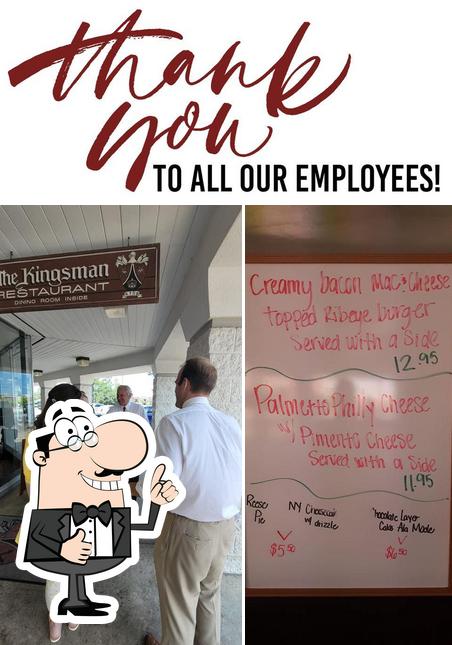 thank
you
TO ALL OUR EMPLOYEES!
The Kingsman
RESTAURANT
DINING ROOM INSIDE
Creamy bacon Mac & Cheese
topped Ribeye burger
Served with a Side
12.95
Palmetto Philly Cheese
w/ Pimento Cheese
Served with a Side
11.95
Reese
Pie
NY Cheesecake
w/ drizzle
$5.50
Chocolate Layer
Cake Ala Mode
$6.50